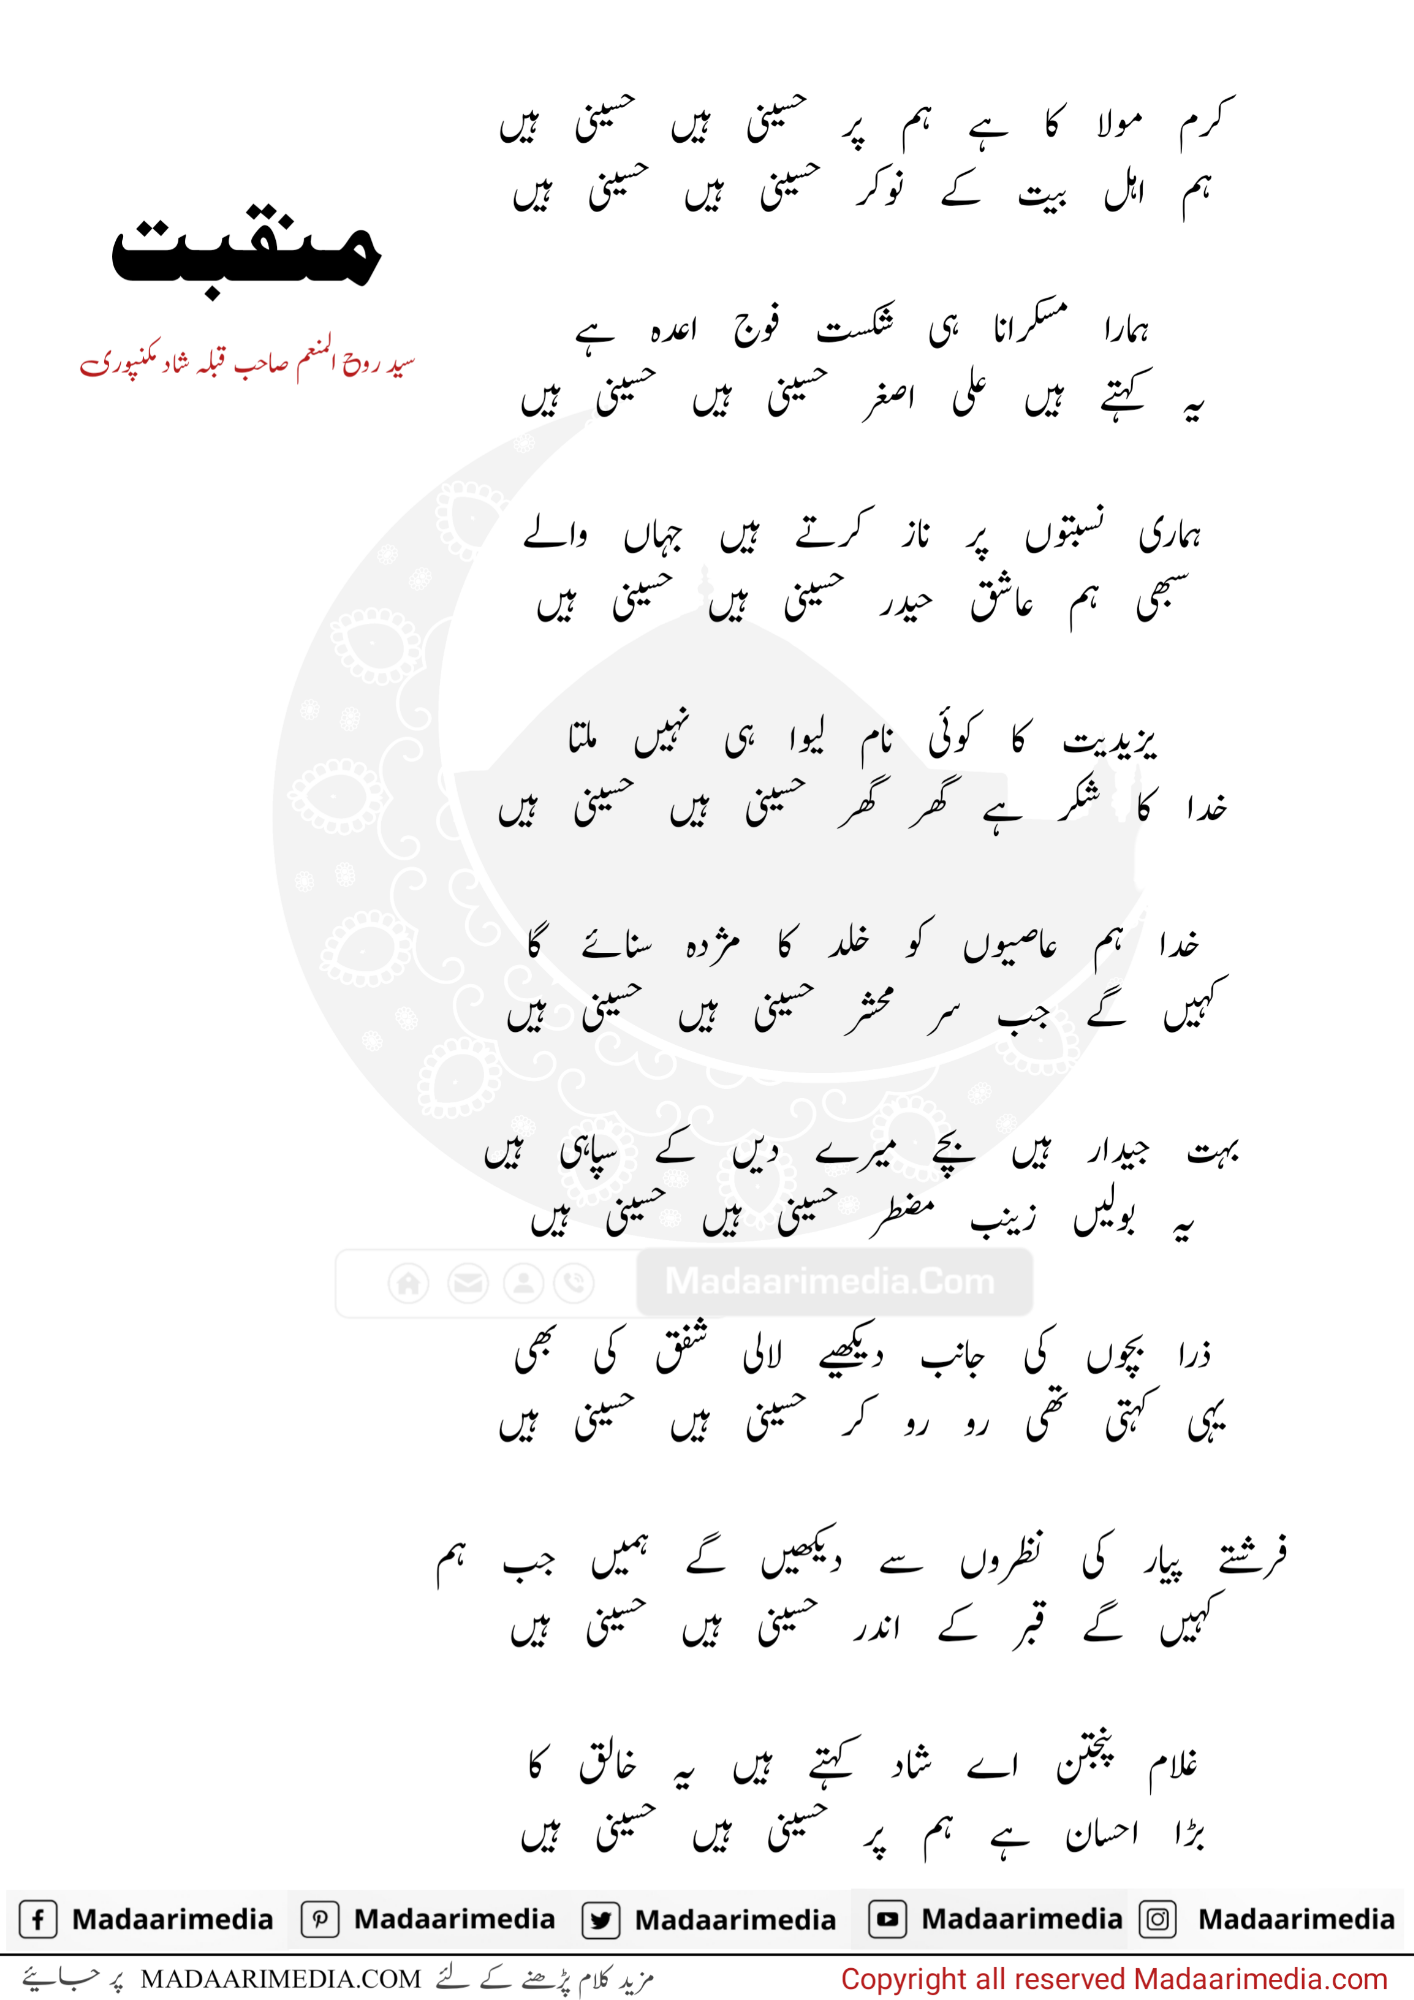 منقبت
سید روح المنعم صاحب قبلہ شاد مکنپوری
کرم مولا کا ہے ہم پر حسینی ہیں حسینی ہیں
ہم اہل بیت کے نوکر حسینی ہیں حسینی ہیں
ہمارا مسکرانا ہی شکست فوج اعدہ ہے
یہ کہتے ہیں علی اصغر حسینی ہیں حسینی ہیں
ہماری نسبتوں پر ناز کرتے ہیں جہاں والے
سبھی ہم عاشق حیدر حسینی ہیں حسینی ہیں
یزیدیت کا کوئی نام لیوا ہی نہیں ملتا
خدا کا شکر ہے گھر گھر حسینی ہیں حسینی ہیں
خدا ہم عاصیوں کو خلد کا مژدہ سنائے گا
کہیں گے جب سر محشر حسینی ہیں حسینی ہیں
بہت جیدار ہیں بچے میرے دیں کے سپاہی ہیں
یہ بولیں زینب مضطر حسینی ہیں حسینی ہیں
Madaarimedia.Com
ذرا بچوں کی جانب دیکھیے لالی شفق کی بھی
یہی کہتی تھی رو رو کر حسینی ہیں حسینی ہیں
فرشتے پیار کی نظروں سے دیکھیں گے ہمیں جب ہم
کہیں گے قبر کے اندر حسینی ہیں حسینی ہیں
غلام پنجتن اے شاد کہتے ہیں یہ خالق کا
بڑا احسان ہے ہم پر حسینی ہیں حسینی ہیں
Madaarimedia Madaarimedia Madaarimedia Madaarimedia Madaarimedia
مزید کلام پڑھنے کے لئے MADAARIMEDIA.COM پر جایئے
Copyright all reserved Madaarimedia.com